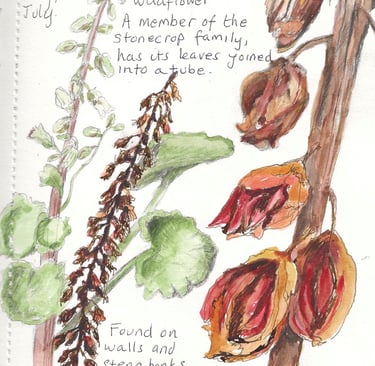 July.
wildflower
A member of the
stonecrop family,
has its leaves joined
into a tube.
Found on
walls and
steep banks